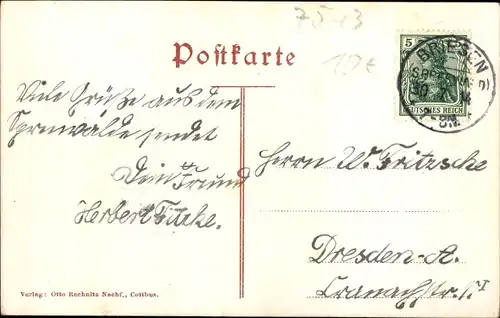 75-13
Postkarte
5
DEUTSCHES REICH
BRIESEN
Viele Grüße aus dem
Spreewalde sendet
Dein Freund
Herbert
Herrn W. Fritzsche
Dresden-A.
Cranachstr.
Verlag: Otto Ruchnitz Nachf., Cottbus.